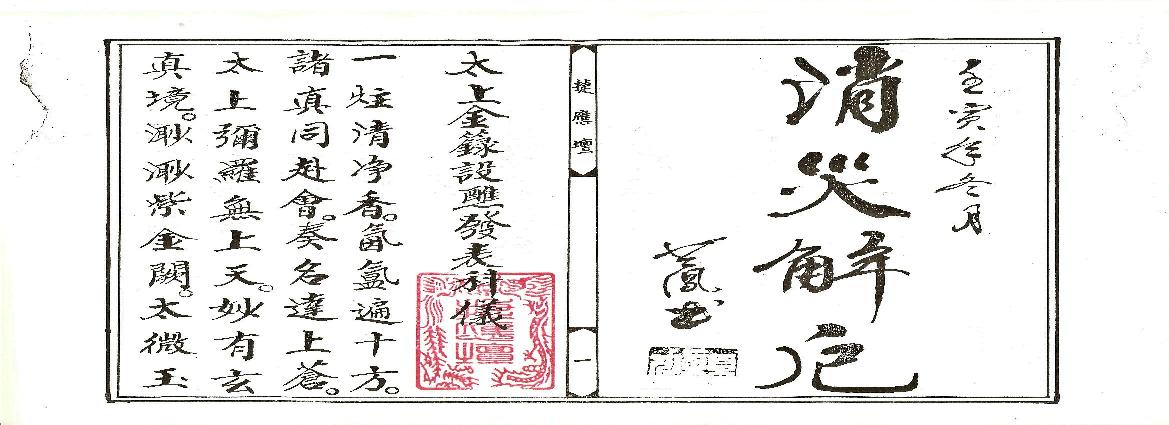 壬寅年冬月
消災解厄
捷應壇
一
太上金籙設醮發表科儀
一炷清净香。氤氳遍十方。
諸真同赴會。奏名達上蒼。
太上彌羅無上天。妙有玄
真境。渺渺紫金闕。太微玉